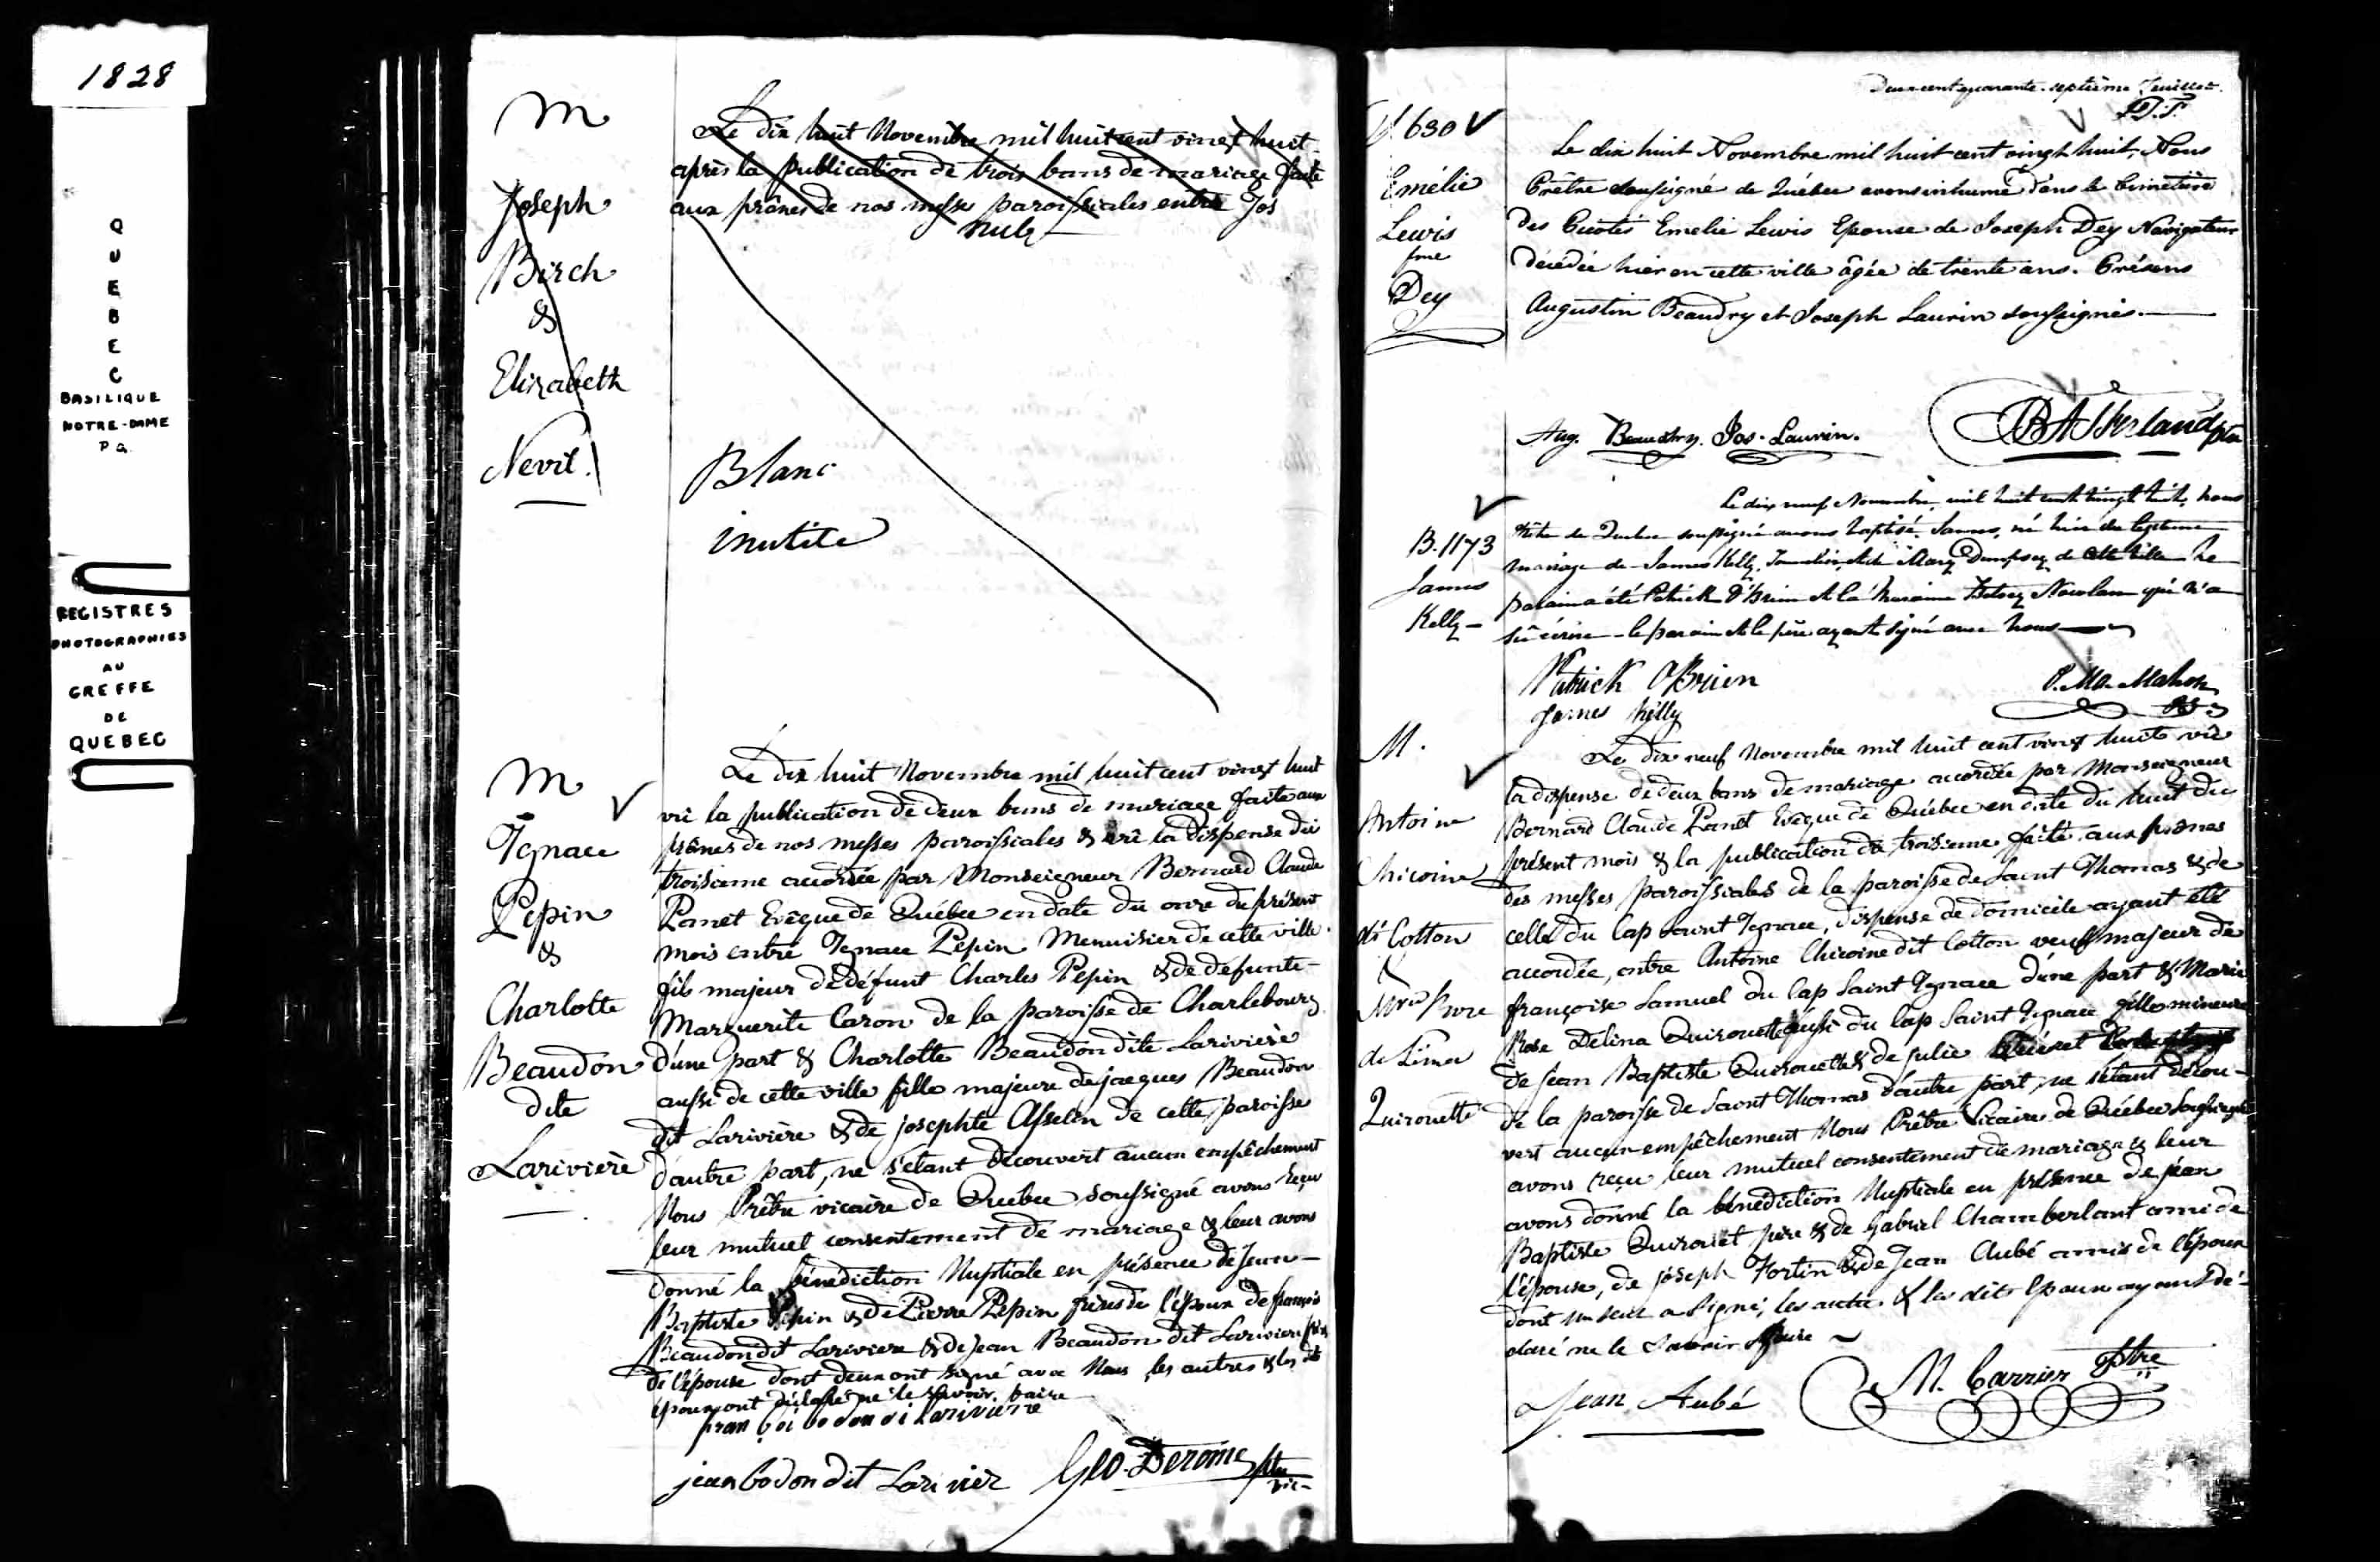 1828
QUEBEC
BASILIQUE
NOTRE-DAME
P.Q.
REGISTRES
PHOTOGRAPHIES
AU
GREFFE
DE
QUEBEC
M
Joseph
Birch
&
Elizabeth
Nevil.
Le dix huit Novembre mil huit cent vingt huit
après la publication de trois bans de mariage faite
aux prônes de nos messes paroissiales entre Jos
nul
Blanc
inutile
M
Ignace
Pepin
&
Charlotte
Beaudon
dite
Larivière
Le dix huit Novembre mil huit cent vingt huit
vû la publication de deux bans de mariage faite aux
prônes de nos messes paroissiales & vû la dispense du
troisieme accordée par Monseigneur Bernard Claude
Panet Evêque de Québec en date du onze du présent
mois entre Ignace Pepin Menuisier de cette ville
fils majeur de défunt Charles Pepin & de defunte
Marguerite Caron de la paroisse de Charlebourg
d'une part & Charlotte Beaudon dite Larivière
aussi de cette ville fille majeure de jacques Beaudon
dit Larivière & de josephte Asselin de cette paroisse
d'autre part, ne s'etant decouvert aucun empêchement
Nous Prêtre vicaire de Quebec soussigné avons reçu
leur mutuel consentement de mariage & leur avons
donné la bénédiction Nuptiale en présence de Jean
Baptiste Pepin & de Pierre Pepin frères de l'époux de françois
Beaudon dit Lariviere & de Jean Beaudon dit Lariviere frères
de l'épouse dont deux ont signé avec Nous les autres & les dits
époux ont déclaré ne le savoir faire
françoi bodon di Larivierre
jean bodon dit Lariviér Geo. Derome Ptre
vic-
Deux cent quarante-septième feuillet.
S. 630
Emélie
Lewis
fme
Dey
Le dix huit Novembre mil huit cent vingt huit, Nous
Prêtre soussigné de Québec avons inhumé dans le Cimetière
des Picotés Emelie Lewis Epouse de Joseph Dey Navigateur
décédée hier en cette ville âgée de trente ans. Présens
Augustin Beaudry et Joseph Laurin soussignés.
Aug. Beaudry. Jos. Laurin. JBAFerland ptre
B. 1173
James
Kelly
Le dix neuf Novembre, mil huit cent vingt huit, nous
Prêtre de Quebec soussigné avons baptisé James, né hier du légitime
mariage de James Kelly, et de Mary Dempsey de cette ville Le
parain a été Patrick O'Brien et la maraine Betsey Nowlan qui n'a
sû écrire le parain et le père ayant signé avec nous
Patrick OBrien P. McMahon
James Kelly
M.
Antoine
Chicoine
dt Cotton
&
Mrie Rose
de Lima
Quirouette
Le dix neuf Novembre mil huit cent vingt huit vû
la dispense de deux bans de mariage accordée par Monseigneur
Bernard Claude Panet Evêque de Québec en date du huit du
présent mois & la publication du troisieme faite aux prônes
des messes paroissiales de la paroisse de Saint Thomas & de
celle du Cap Saint Ignace, dispense de domicile ayant été
accordée, entre Antoine Chicoine dit Cotton veuf majeur de
françoise Samuel du Cap Saint Ignace d'une part & Marie
Rose Delina Quirouette aussi du Cap Saint Ignace fille mineure
de Jean Baptiste Quirouette & de Julie
de la paroisse de Saint Thomas d'autre part, ne s'étant décou-
vert aucun empêchement Nous Prêtre Vicaire de Québec soussigné
avons reçu leur mutuel consentement de mariage & leur
avons donné la bénédiction Nuptiale en présence de Jean
Baptiste Quirouet père & de Gabriel Chamberlant ami de
l'épouse, de Joseph Fortin & de Jean Aubé amis de l'époux
dont un seul a signé, les autres & les dits époux ayant dé-
claré ne le savoir faire
Jean Aubé M. Carrier Ptre